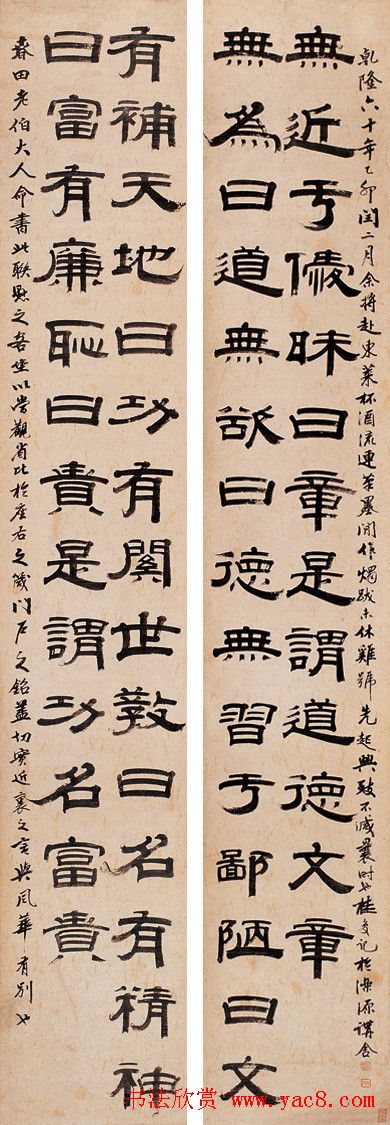 無為曰道無欲曰德無習亏鄙陋曰文
無近亏僾昧曰章是謂道德文章
乾隆六十年乙卯閏二月余將赴東萊杯酒流連筆墨閒作燭跋未休雞號先起興致不減曩時也桂馥記於濼源講舍
有補天地曰功有關世教曰名有精神
曰富有廉恥曰貴是謂功名富貴
春田老伯大人命書此聯懸之吾坐以當觀省比於座右之箴門戶之銘蓋切實近裏之言與風華有別也
书法欣赏 www.yac8.com